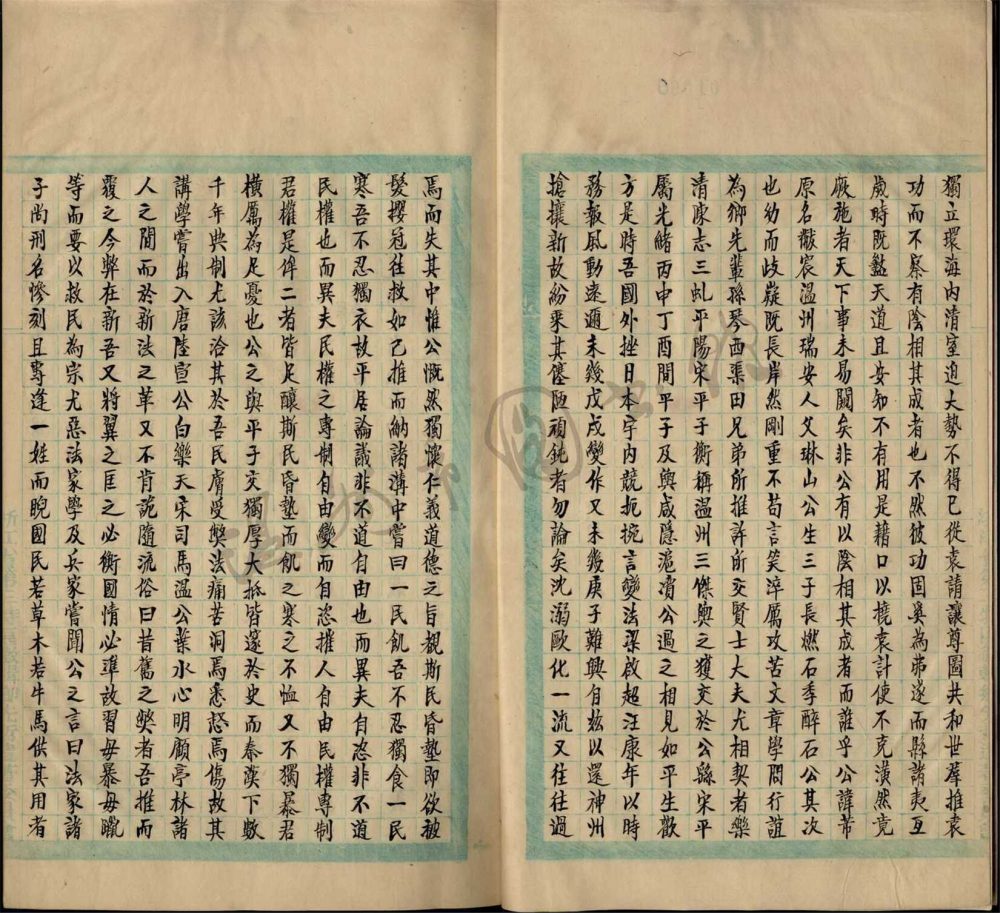 獨立環海內清室迫大勢不得已從袁請讓尊圖共和世羣推袁
功而不察有陰相其成者也不然彼功固奚為弗遂而縣諸夷互
歲時既盭天道且安知不有用是藉口以撓袁計使不克潢然竟
厥施者天下事未易闚矣非公有以陰相其成者而誰乎公諱芾
原名黻宸溫州瑞安人父琳山公生三子長燃石季醉石公其次
也幼而歧嶷既長岸然剛重不苟言笑淬厲攻苦文章學問行誼
為鄉先輩孫琴西渠田兄弟所推許所交賢士大夫尤相契者樂
清陳志三虬平陽宋平子衡稱溫州三傑與之獲交於公縣宋平
屬先緒丙申丁酉間平子及與咸隱滬瀆公過之相見如平生歡
方是時吾國外挫日本宇內競扼捥言變法梁啟超汪康年以時
務報風動遠邇未幾戊戌變作又未幾庚子難興自茲以還神州
搶攘新故紛來其僿陋頑鈍者勿論矣沈溺歐化一流又往往過
焉而失其中惟公慨然獨懷仁義道德之旨覩斯民昏墊即欲被
髮攖冠往救如己推而納諸溝中嘗曰一民飢吾不忍獨食一民
寒吾不忍獨衣故平居論議非不道自由也而異夫自恣非不道
民權也而異夫民權之專制自由變而自恣摧人自由民權專制
君權是侔二者皆足釀斯民昏墊而飢之寒之不恤又不獨暴君
橫厲為足憂也公之與平子交獨厚大抵皆邃於史而秦漢下數
千年典制尤該洽其於吾民膚受弊法痛苦洞焉悉惄焉傷故其
講學嘗出入唐陸宣公白樂天宋司馬溫公葉水心明顧亭林諸
人之間而於新法之革又不肯詭隨流俗曰昔舊之弊者吾推而
覆之今弊在新吾又將翼之匡之必衡國情必準故習毋暴毋躐
等而要以救民為宗尤惡法家學及兵家嘗聞公之言曰法家諸
子尚刑名慘刻且專逢一姓而睨國民若草木若牛馬供其用者